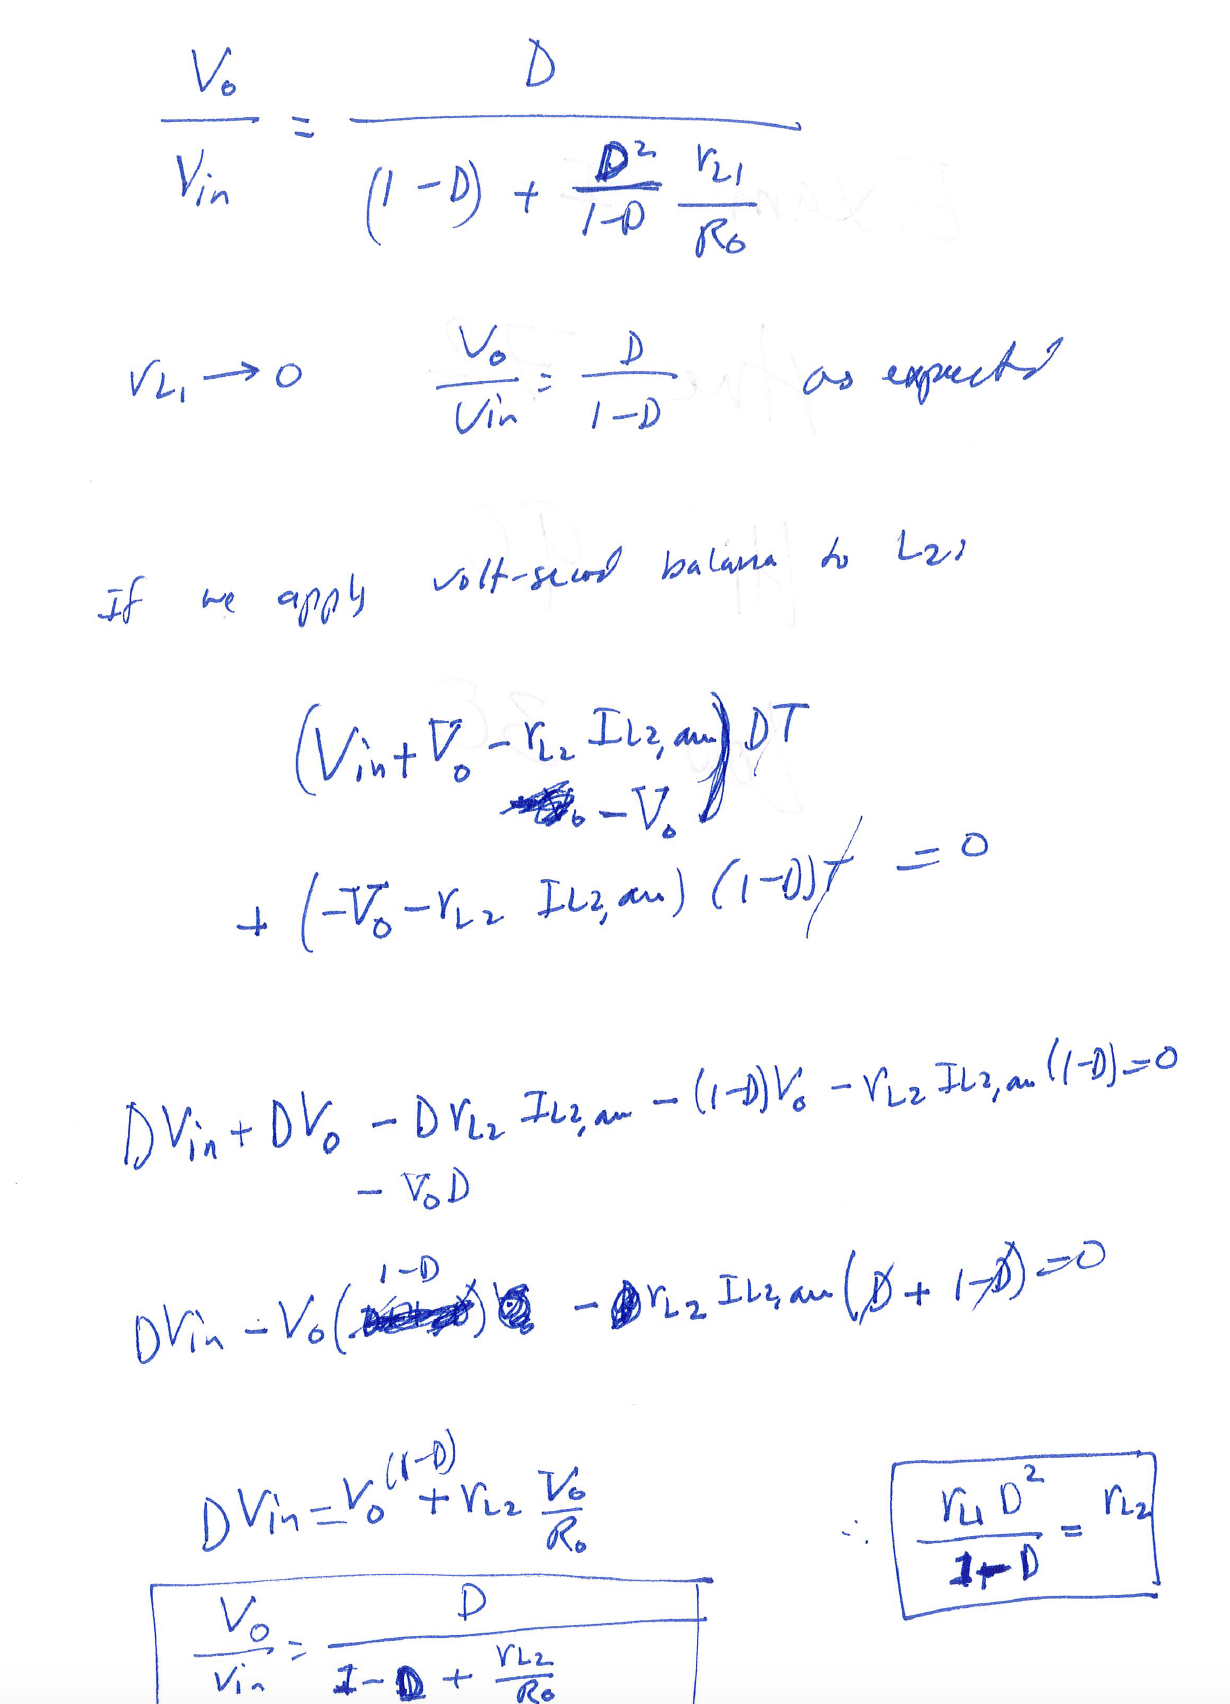 V₀/Vin = D / ((1-D) + D²/(1-D) rL1/R₀)
rL1 → 0 V₀/Vin = D/(1-D) as expected
If we apply volt-second balance to L2:
(Vin + V₀ - rL2 IL2,av - V₀) DT
+ (-V₀ - rL2 IL2,av) (1-D)T = 0
DVin + DV₀ - D rL2 IL2,av - (1-D)V₀ - rL2 IL2,av (1-D) = 0
- V₀D
DVin - V₀(1-D) - rL2 IL2,av (D + 1-D) = 0
DVin = V₀(1-D) + rL2 V₀/R₀
∴ rL1 D²/(1-D) = rL2
V₀/Vin = D / (1-D + rL2/R₀)